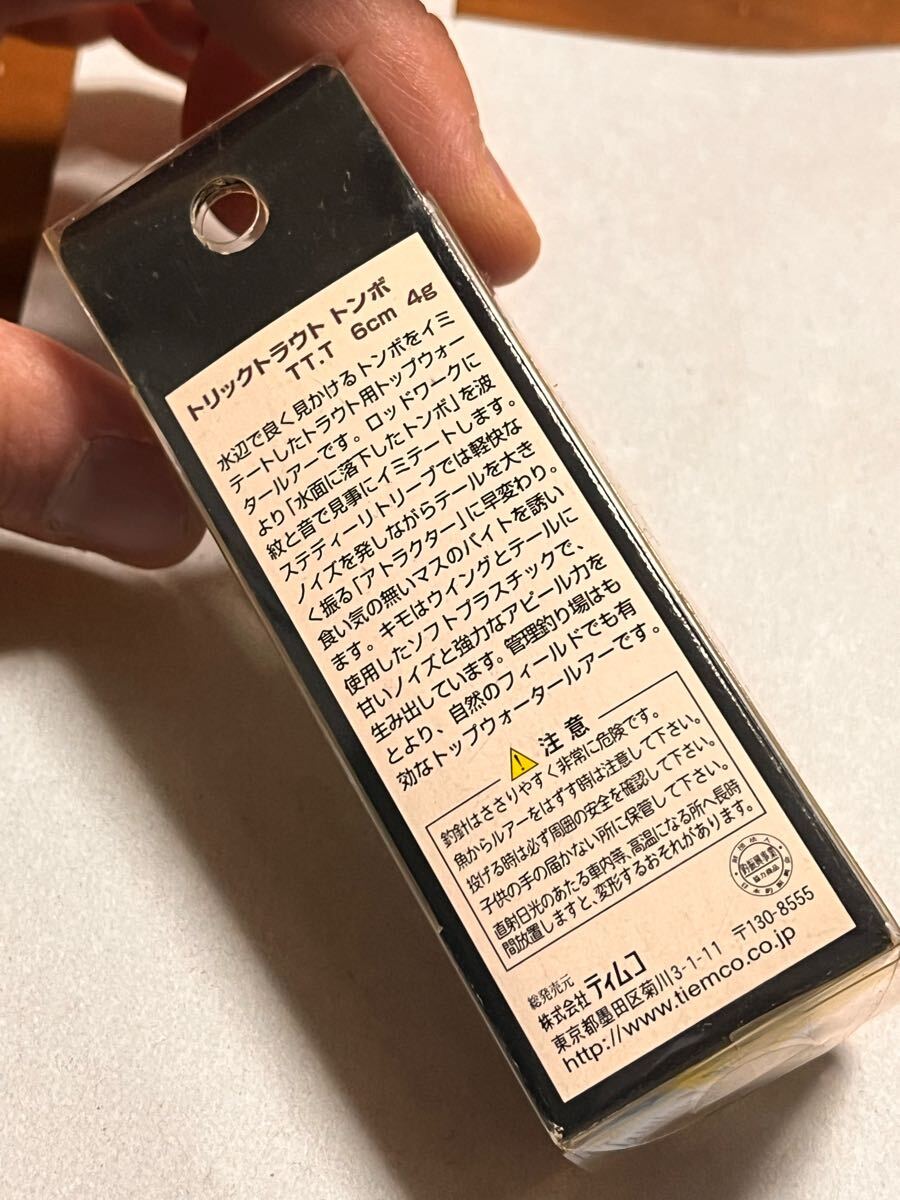 トリックトラウト トンボ
TT.T 6cm 4g
水辺で良く見かけるトンボをイミ
テートしたトラウト用トップウォー
タールアーです。ロッドワークに
より「水面に落下したトンボ」を波
紋と音で見事にイミテートします。
ステディーリトリーブでは軽快な
ノイズを発しながらテールを大き
く振る「アトラクター」に早変わり。
食い気の無いマスのバイトを誘い
ます。キモはウイングとテールに
使用したソフトプラスチックで、
甘いノイズと強力なアピール力を
生み出しています。管理釣り場はも
とより、自然のフィールドでも有
効なトップウォータールアーです。
注意
釣針はささりやすく非常に危険です。
魚からルアーをはずす時は注意して下さい。
投げる時は必ず周囲の安全を確認して下さい。
子供の手の届かない所に保管して下さい。
直射日光のあたる車内等、高温になる所へ長時
間放置しますと、変形するおそれがあります。
総発売元
株式会社 ティムコ
東京都墨田区菊川3-1-11 〒130-8555
http://www.tiemco.co.jp